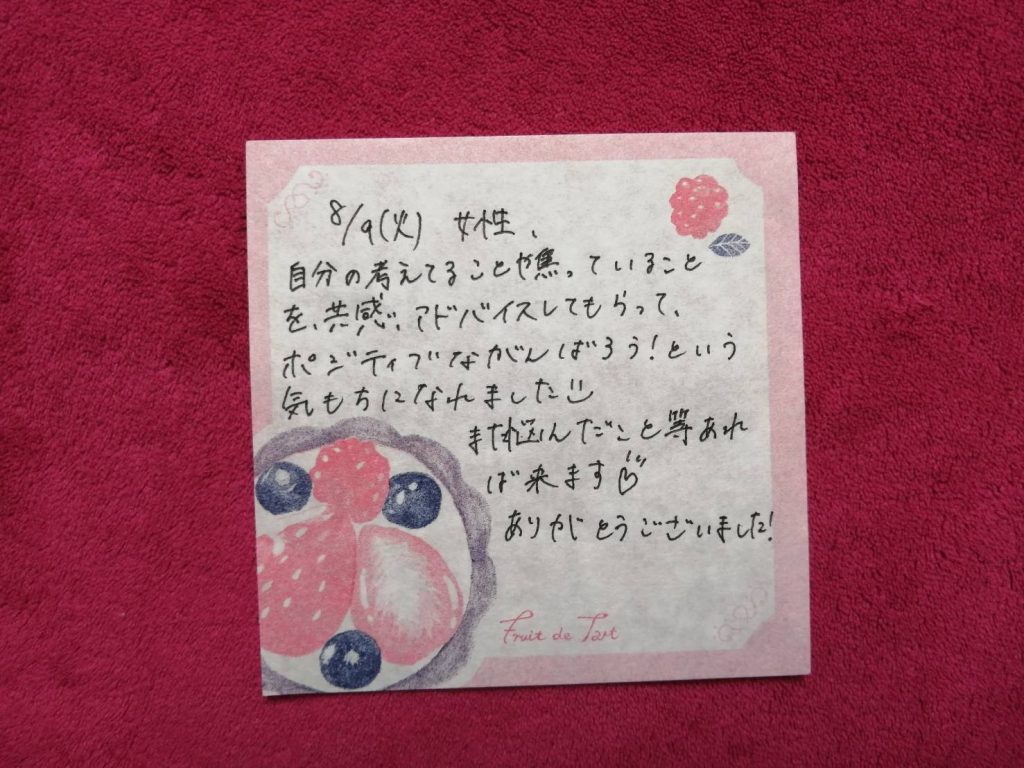 8/9(火) 女性、
自分の考えてることや焦っていること
を、共感、アドバイスしてもらって、
ポジティブながんばろう!という
気もちになれました
また悩んだこと等あれ
ば来ます
ありがとうございました!
Fruit de Tart